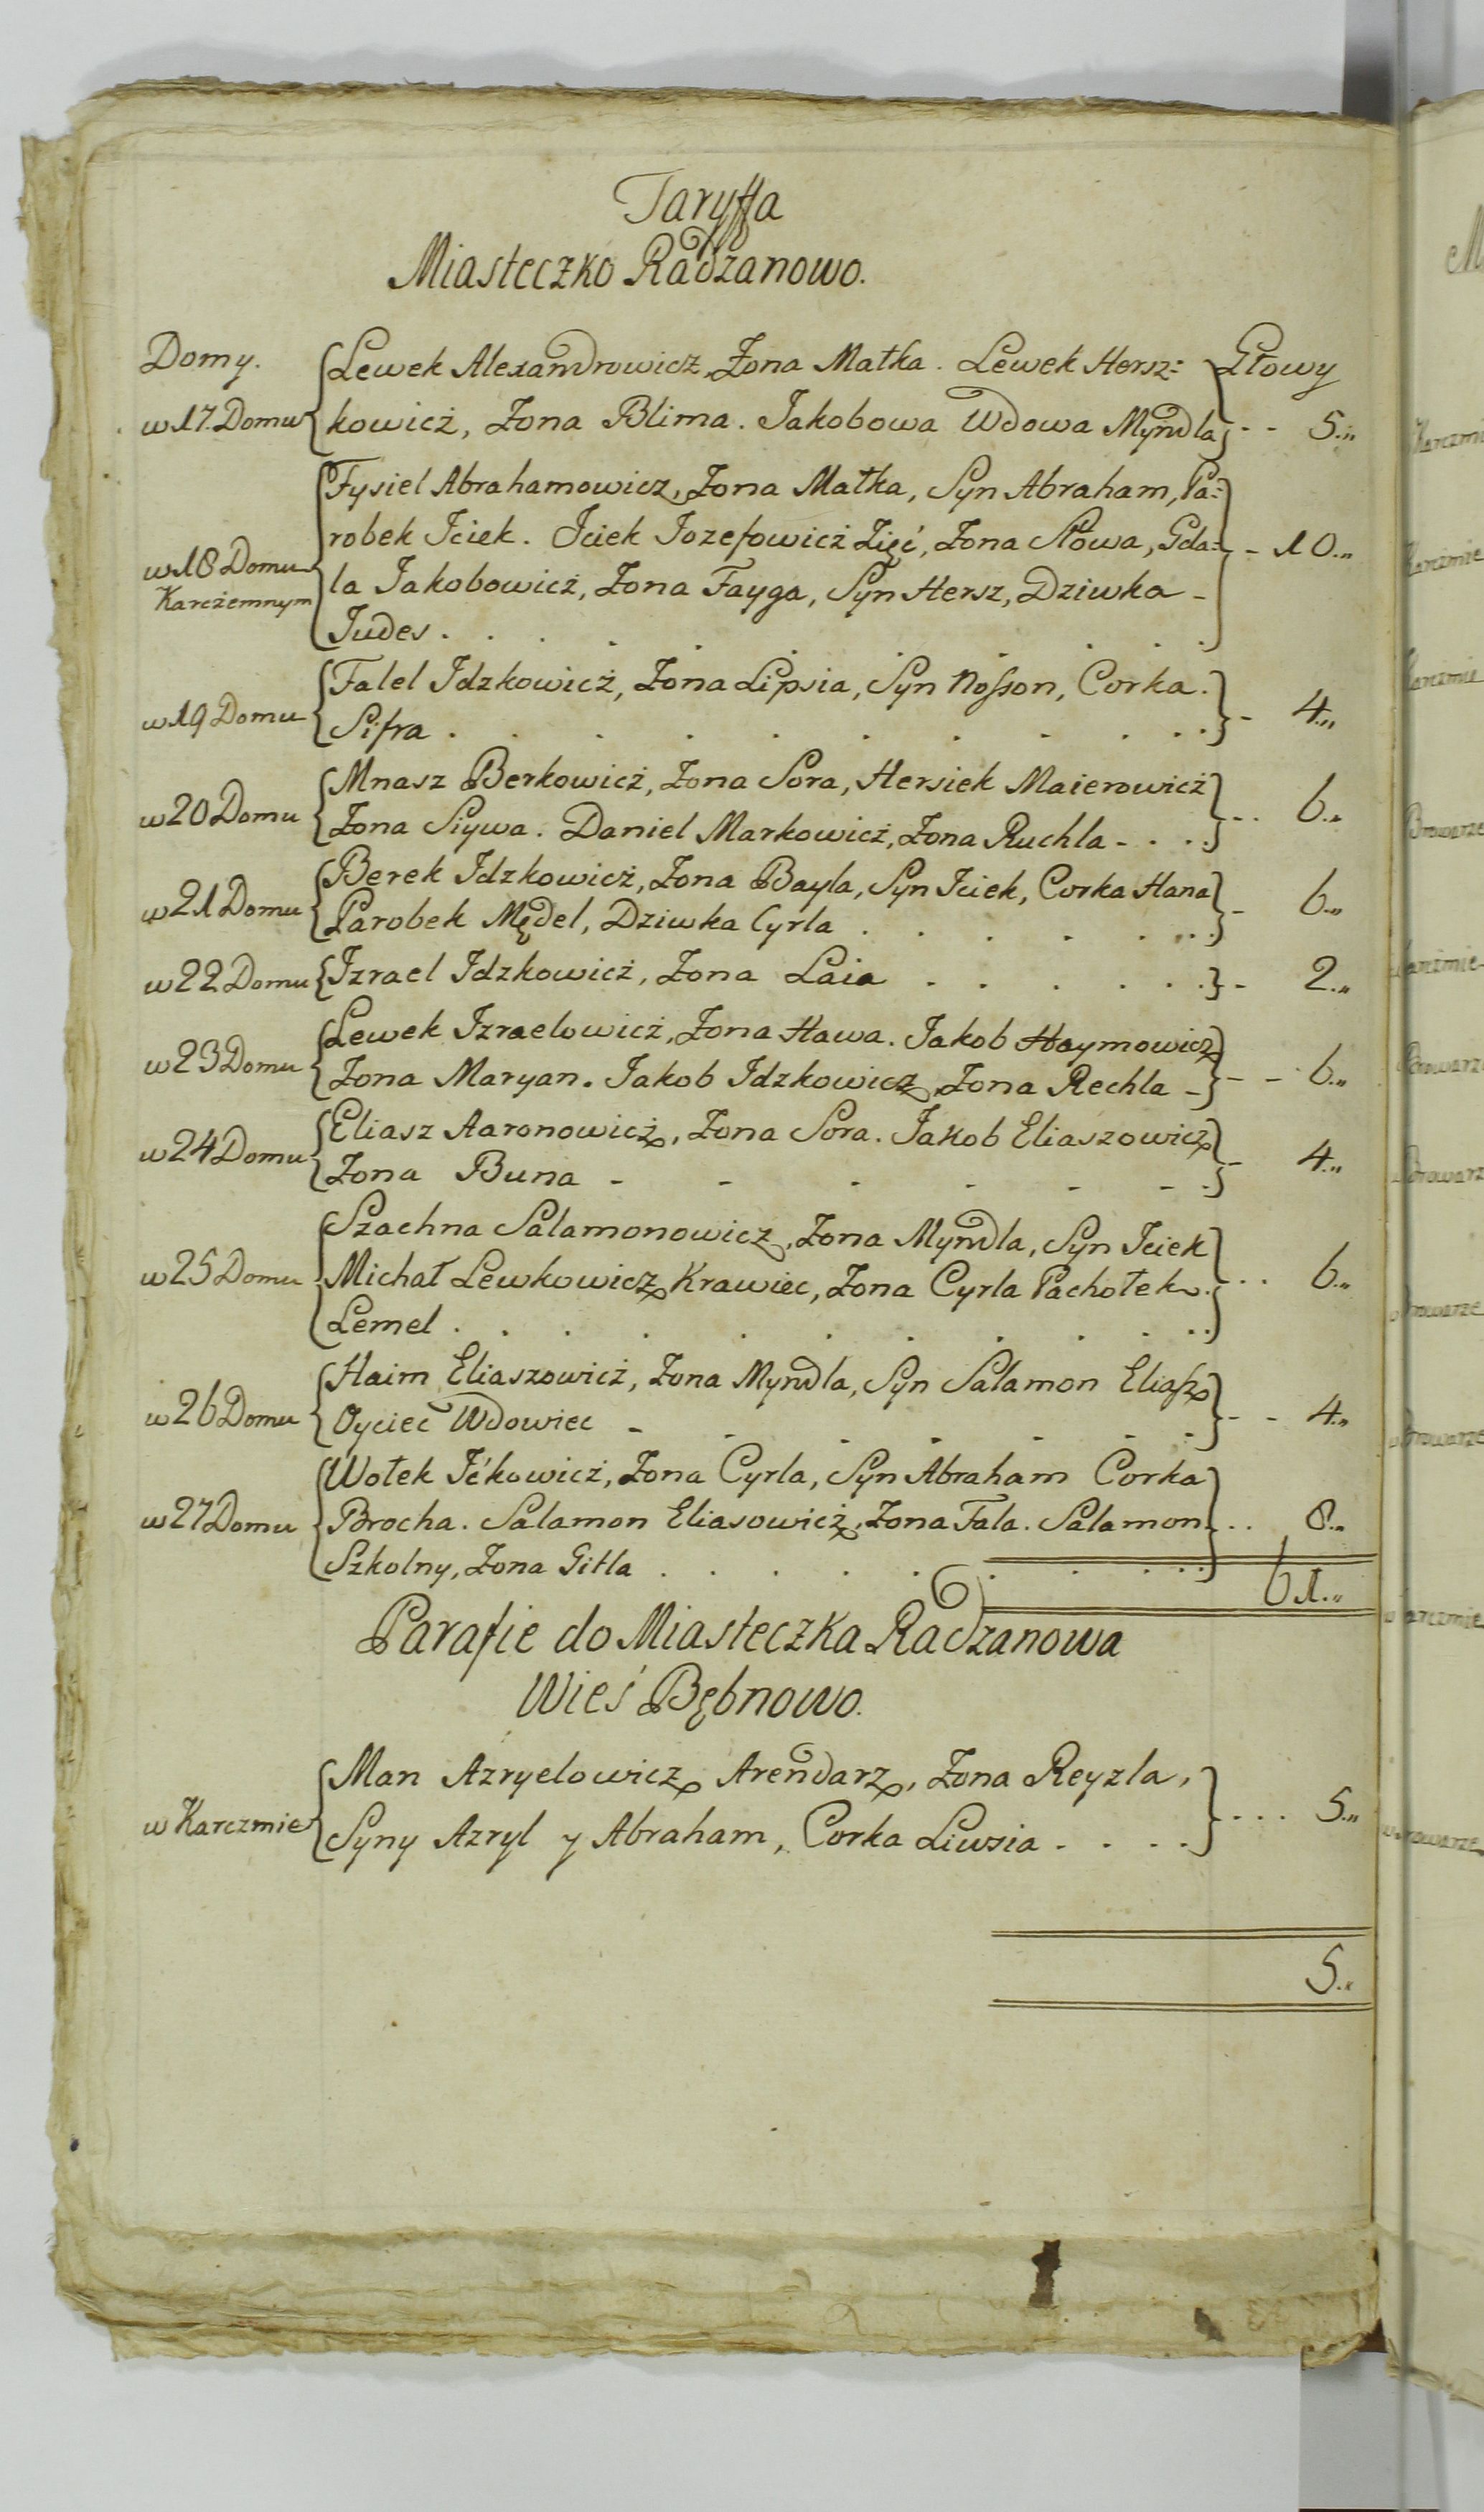 Taryffa
Miasteczko Radzanowo.
Domy. Lewek Alexandrowicz, Żona Małka. Lewek Hersz= Głowy
w 17 Domu kowicż, Żona Blima. Jakobowa Wdowa Myndla - - 5.,,
Fysiel Abrahamowicz, Żona Małka, Syn Abraham, Pa=
robek Iciek. Iciek Jozefowicż Zięć, Żona Słowa, Gda= - 10.,,
w 18 Domu la Jakobowicż, Żona Fayga, Syn Hersz, Dziwka -
Karcżemnym
Judes . . . . . . . . .
Falel Idzkowicż, Żona Lipsia, Syn Nosson, Corka .
w 19 Domu Sifra . . . . . . . . . . - 4.,,
Mnasz Berkowicż, Żona Sora, Hersiek Maierowicż
w 20 Domu Żona Siywa. Daniel Markowicż, Żona Ruchla - . . . ... 6.,,
Berek Idzkowicż, Żona Bayla, Syn Iciek, Corka Hana
w 21 Domu Parobek Mędel, Dziwka Cyrla . . . . . . . . - 6.,,
w 22 Domu Izrael Idzkowicż, Żona Laia . . . . . . . - 2.,,
Lewek Izraelowicż, Żona Hawa. Jakob Haymowicz
w 23 Domu Żona Maryan. Jakob Idzkowicz, Żona Rechla - - - 6.,,
Eliasz Aaronowicż, Żona Sora. Jakob Eliaszowicz
w 24 Domu Żona Buna - - - - - - - - 4.,,
Szachna Salamonowicz, Żona Myndla, Syn Iciek
w 25 Domu Michał Lewkowicz Krawiec, Żona Cyrla Pachołek. ... 6.,,
Lemel . . . . . . . . . . .
Haim Eliaszowicż, Żona Myndla, Syn Salamon Eliasz
w 26 Domu Oyciec Wdowiec - - - - - - - - - 4.,,
Wołek Ićkowicż, Żona Cyrla, Syn Abraham Corka
w 27 Domu Brocha. Salamon Eliasowicż, Żona Fala. Salamon .. 8.,,
Szkolny, Żona Gitla . . . . . . . . . .
61.,,
Parafie do Miasteczka Radzanowa
Wieś Bębnowo.
Man Azryelowicz Arendarz, Żona Reyzla,
w Karczmie Syny Azryl y Abraham, Corka Liwsia . . . . .... 5.,,
5.,,